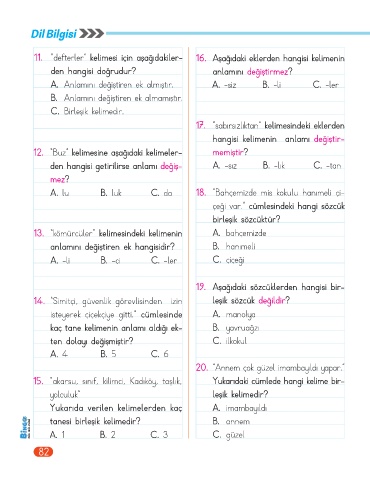 Dil Bilgisi
11. "defterler" kelimesi için aşağıdakiler-
den hangisi doğrudur?
A. Anlamını değiştiren ek almıştır.
B. Anlamını değiştiren ek almamıştır.
C. Birleşik kelimedir.
12. "Buz" kelimesine aşağıdaki kelimeler-
den hangisi getirilirse anlamı değiş-
mez?
A. lu
B. luk
C. da
13. "kömürcüler" kelimesindeki kelimenin
anlamını değiştiren ek hangisidir?
A. -li
B. -ci
C. -ler
14. "Simitçi, güvenlik görevlisinden izin
isteyerek çiçekçiye gitti." cümlesinde
kaç tane kelimenin anlamı aldığı ek-
ten dolayı değişmiştir?
A. 4
B. 5
C. 6
15. "akarsu, sınıf, kilimci, Kadıköy, taşlık,
yolculuk"
Yukarıda verilen kelimelerden kaç
tanesi birleşik kelimedir?
A. 1
B. 2
C. 3
16. Aşağıdaki eklerden hangisi kelimenin
anlamını değiştirmez?
A. -siz
B. -li
C. -ler
17. "sabırsızlıktan" kelimesindeki eklerden
hangisi kelimenin anlamı değiştir-
memiştir?
A. -sız
B. -lık
C. -tan
18. "Bahçemizde mis kokulu hanımeli çi-
çeği var." cümlesindeki hangi sözcük
birleşik sözcüktür?
A. bahçemizde
B. hanımeli
C. çiçeği
19. Aşağıdaki sözcüklerden hangisi bir-
leşik sözcük değildir?
A. manolya
B. yavruağzı
C. ilkokul
20. "Annem çok güzel imambayıldı yapar."
Yukarıdaki cümlede hangi kelime bir-
leşik kelimedir?
A. imambayıldı
B. annem
C. güzel
82